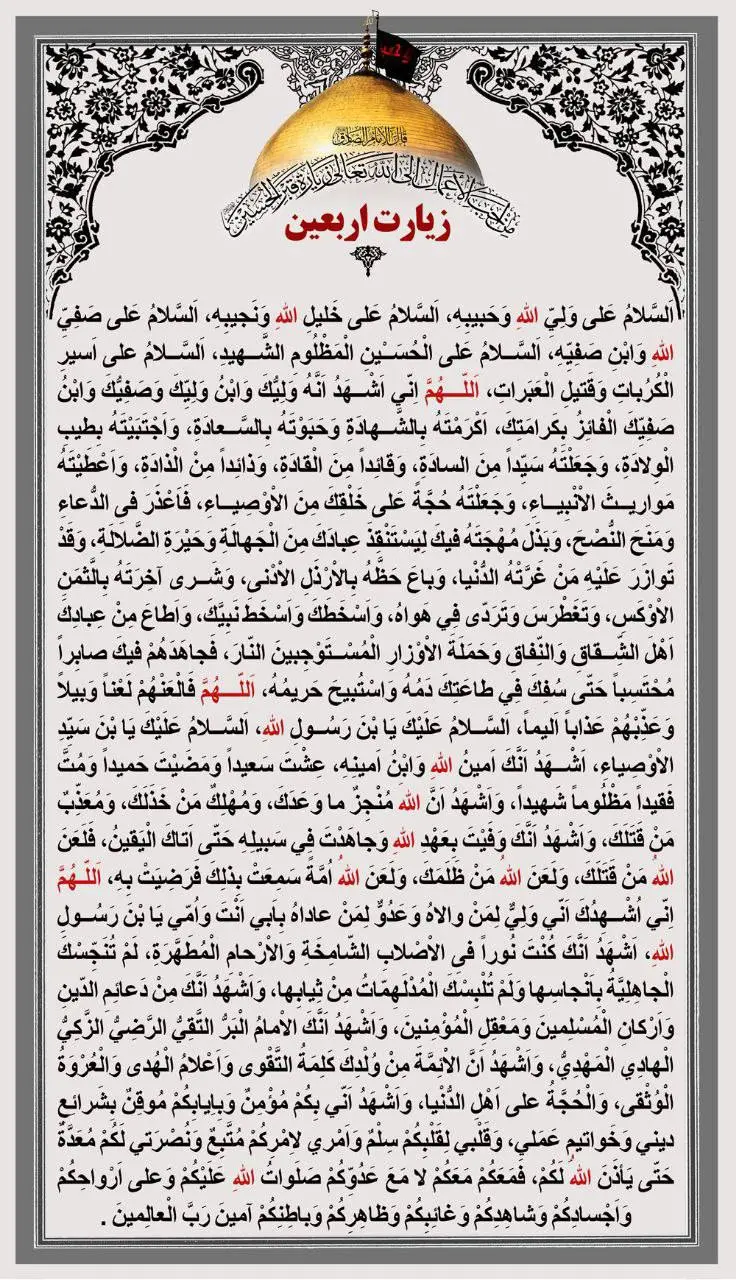 قال الامام الصادق
من احب الاعمال الى الله تعالى زيارة قبر الحسين
زیارت اربعین
اَلسَّلامُ عَلى وَلِيِّ اللهِ وَحَبيبِهِ، اَلسَّلامُ عَلى خَليلِ اللهِ وَنَجيبِهِ، اَلسَّلامُ عَلى صَفِيِّ
اللهِ وَابْنِ صَفِيِّهِ، اَلسَّلامُ عَلى الْحُسَيْنِ الْمَظْلُومِ الشَّهيدِ، اَلسَّلامُ على اَسيرِ
الْكُرُباتِ وَقَتيلِ الْعَبَراتِ، اَللّـهُمَّ اِنّي اَشْهَدُ اَنَّهُ وَلِيُّكَ وَابْنُ وَلِيِّكَ وَصَفِيُّكَ وَابْنُ
صَفِيِّكَ الْفائِزُ بِكَرامَتِكَ، اَكْرَمْتَهُ بِالشَّهادَةِ وَحَبَوْتَهُ بِالسَّعادَةِ، وَاَجْتَبَيْتَهُ بِطيبِ
الْوِلادَةِ، وَجَعَلْتَهُ سَيِّداً مِنَ السادَةِ، وَقائِداً مِنَ الْقادَةِ، وَذائِداً مِنْ الْذادَةِ، وَاَعْطَيْتَهُ
مَواريثَ الاَْنْبِياءِ، وَجَعَلْتَهُ حُجَّةً عَلى خَلْقِكَ مِنَ الاَْوْصِياءِ، فَاَعْذَرَ فى الدُّعاءِ
وَمَنَحَ النُّصْحَ، وَبَذَلَ مُهْجَتَهُ فيكَ لِيَسْتَنْقِذَ عِبادَكَ مِنَ الْجَهالَةِ وَحَيْرَةِ الضَّلالَةِ، وَقَدْ
تَوازَرَ عَلَيْهِ مَنْ غَرَّتْهُ الدُّنْيا، وَباعَ حَظَّهُ بِالاَْرْذَلِ الاَْدْنى، وَشَرى آخِرَتَهُ بِالَّثمَنِ
الاَْوْكَسِ، وَتَغَطْرَسَ وَتَرَدّى فِي هَواهُ، وَاَسْخَطَكَ وَاَسْخَطَ نَبِيَّكَ، وَاَطاعَ مِنْ عِبادِكَ
اَهْلَ الشِّقاقِ وَالنِّفاقِ وَحَمَلَةَ الاَْوْزارِ الْمُسْتَوْجِبينَ النّارَ، فَجاهَدَهُمْ فيكَ صابِراً
مُحْتَسِباً حَتّى سُفِكَ فِي طاعَتِكَ دَمُهُ وَاسْتُبيحَ حَريمُهُ، اَللّـهُمَّ فَالْعَنْهُمْ لَعْناً وَبيلاً
وَعَذِّبْهُمْ عَذاباً اَليماً، اَلسَّلامُ عَلَيْكَ يَا بْنَ رَسُولِ اللهِ، اَلسَّلامُ عَلَيْكَ يَا بْنَ سَيِّدِ
الاَْوْصِياءِ، اَشْهَدُ اَنَّكَ اَمينُ اللهِ وَابْنُ اَمينِهِ، عِشْتَ سَعيداً وَمَضَيْتَ حَميداً وَمُتَّ
فَقيداً مَظْلُوماً شَهيداً، وَاَشْهَدُ اَنَّ اللهَ مُنْجِزٌ ما وَعَدَكَ، وَمُهْلِكٌ مَنْ خَذَلَكَ، وَمُعَذِّبٌ
مَنْ قَتَلَكَ، وَاَشْهَدُ اَنَّكَ وَفَيْتَ بِعَهْدِ اللهِ وَجاهَدْتَ فِي سَبيلِهِ حَتّى اَتاكَ الْيَقينُ، فَلَعَنَ
اللهُ مَنْ قَتَلَكَ، وَلَعَنَ اللهُ مَنْ ظَلَمَكَ، وَلَعَنَ اللهُ اُمَّةً سَمِعَتْ بِذلِكَ فَرَضِيَتْ بِهِ، اَللّـهُمَّ
اِنّي اُشْهِدُكَ اَنّي وَلِيٌّ لِمَنْ والاهُ وَعَدُوٌّ لِمَنْ عاداهُ بِاَبي اَنْتَ وَاُمّي يَا بْنَ رَسُولِ
اللهِ، اَشْهَدُ اَنَّكَ كُنْتَ نُوراً فى الاَْصْلابِ الشّامِخَةِ وَالاَْرْحامِ الْمُطَهَّرَةِ، لَمْ تُنَجِّسْكَ
الْجاهِلِيَّةُ بِاَنْجاسِها وَلَمْ تُلْبِسْكَ الْمُدْلَهِمّاتُ مِنْ ثِيابِها، وَاَشْهَدُ اَنَّكَ مِنْ دَعائِمِ الدّينِ
وَاَرْكانِ الْمُسْلِمينَ وَمَعْقِلِ الْمُؤْمِنينَ، وَاَشْهَدُ اَنَّكَ الاِْمامُ الْبَرُّ التَّقِيُّ الرَّضِيُّ الزَّكِيُّ
الْهادِي الْمَهْدِيُّ، وَاَشْهَدُ اَنَّ الاَْئِمَّةَ مِنْ وُلْدِكَ كَلِمَةُ التَّقْوى وَاَعْلامُ الْهُدى وَالْعُرْوَةُ
الْوُثْقى، وَالْحُجَّةُ على اَهْلِ الدُّنْيا، وَاَشْهَدُ اَنّي بِكُمْ مُؤْمِنٌ وَبِاِيابِكُمْ مُوقِنٌ بِشَرائِعِ
ديني وَخَواتيمِ عَمَلي، وَقَلْبي لِقَلْبِكُمْ سِلْمٌ وَاَمْري لاَِمْرِكُمْ مُتَّبِعٌ وَنُصْرَتي لَكُمْ مُعَدَّةٌ
حَتّى يَأذَنَ اللهُ لَكُمْ، فَمَعَكُمْ مَعَكُمْ لا مَعَ عَدُوِّكُمْ صَلَواتُ اللهِ عَلَيْكُمْ وَعلى اَرْواحِكُمْ
وَاَجْسادِكُمْ وَشاهِدِكُمْ وَغائِبِكُمْ وَظاهِرِكُمْ وَباطِنِكُمْ آمينَ رَبَّ الْعالِمينَ .